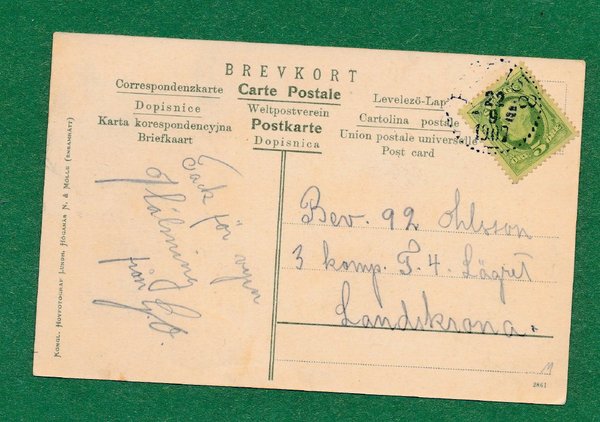 BREVKORT
Correspondenzkarte Carte Postale Levelező-Lap
Dopisnice Weltpostverein Cartolina postale
Karta korespondencyjna Postkarte Union postale universelle
Briefkaart Dopisnica Post card
22
9
1907
Tack för vyen
Hälsning
från
Bev. 92 Ohlsson
3 komp. Lägret
Landskrona.
KONGL. HOFFOTOGRAF LUNDH, HÖGANÄS N. & MÖLLE (ENSAMRÄTT)
2861